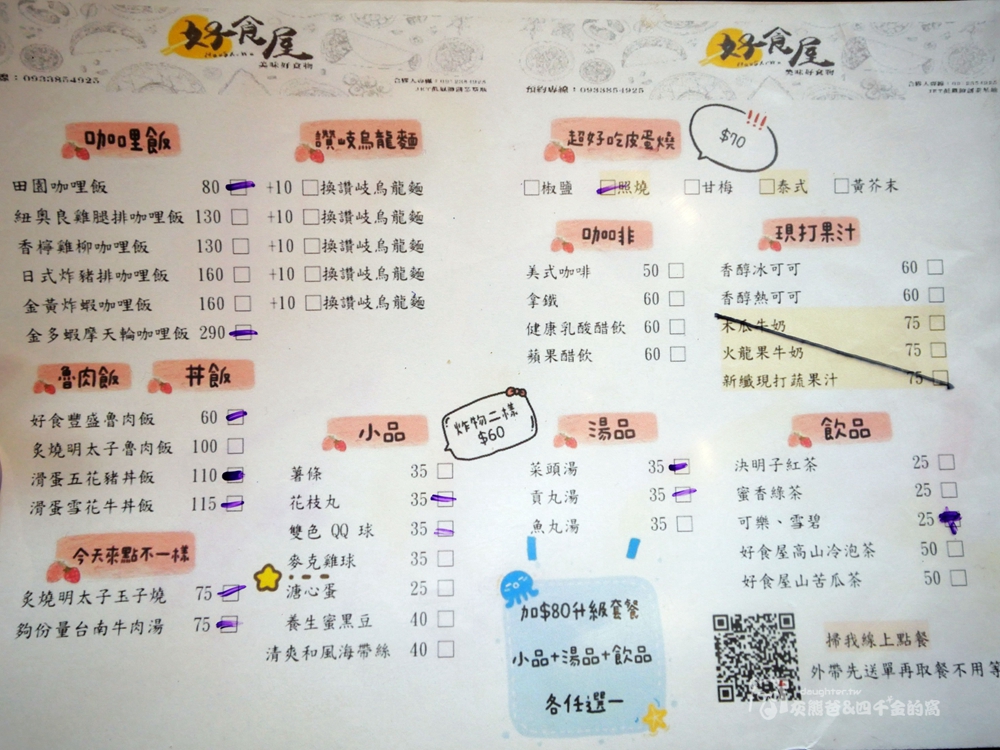 好食屋
美味好食物
線：0933854925
好食屋
美味好食物
預約專線：0933854925
咖哩飯
田園咖哩飯 80 +10 換讚岐烏龍麵
紐奧良雞腿排咖哩飯 130 +10 換讚岐烏龍麵
香檸雞柳咖哩飯 130 +10 換讚岐烏龍麵
日式炸豬排咖哩飯 160 +10 換讚岐烏龍麵
金黃炸蝦咖哩飯 160 +10 換讚岐烏龍麵
金多蝦摩天輪咖哩飯 290
讚岐烏龍麵
超好吃皮蛋燒
$70
椒鹽 照燒 甘梅 泰式 黃芥末
咖啡
美式咖啡 50
拿鐵 60
健康乳酸醋飲 60
蘋果醋飲 60
現打果汁
香醇冰可可 60
香醇熱可可 60
木瓜牛奶 75
火龍果牛奶 75
新纖現打蔬果汁 75
魯肉飯
丼飯
好食豐盛魯肉飯 60
炙燒明太子魯肉飯 100
滑蛋五花豬丼飯 110
滑蛋雪花牛丼飯 115
今天來點不一樣
炙燒明太子玉子燒 75
夠份量台南牛肉湯 75
小品
炸物二樣
$60
薯條 35
花枝丸 35
雙色 QQ 球 35
麥克雞球 35
溏心蛋 25
養生蜜黑豆 40
清爽和風海帶絲 40
湯品
菜頭湯 35
貢丸湯 35
魚丸湯 35
加$80升級套餐
小品+湯品+飲品
各任選一
飲品
決明子紅茶 25
蜜香綠茶 25
可樂、雪碧 25
好食屋高山冷泡茶 50
好食屋山苦瓜茶 50
掃我線上點餐
外帶先送單再取餐不用等
daughter.tw
灰熊爸&四千金的窩